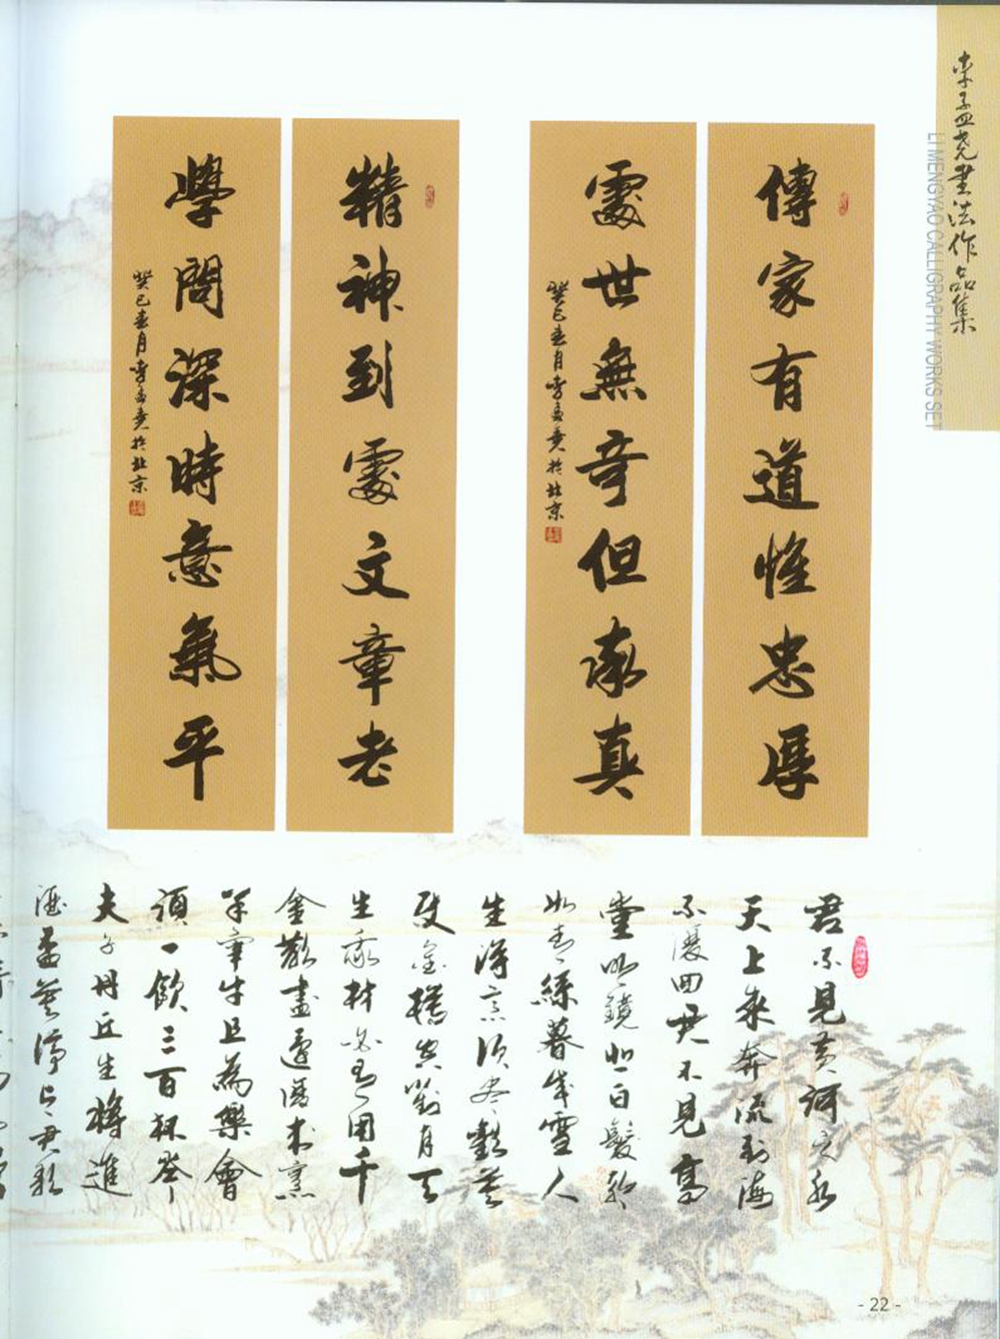 李孟尧書法作品集
LI MENGYAO CALLIGRAPHY WORKS SET
傳家有道惟忠厚
處世無奇但率真
癸巳春月李孟尧於北京
精神到處文章老
學問深時意氣平
癸巳春月李孟尧於北京
君不見黃河之水
天上來奔流到海
不復回君不見高
堂明鏡悲白髮朝
如青絲暮成雪人
生得意須盡歡莫
使金樽空對月天
生我材必有用千
金散盡還復來烹
羊宰牛且為樂會
須一飲三百杯岑
夫子丹丘生將進
酒盃莫停與君歌
- 22 -